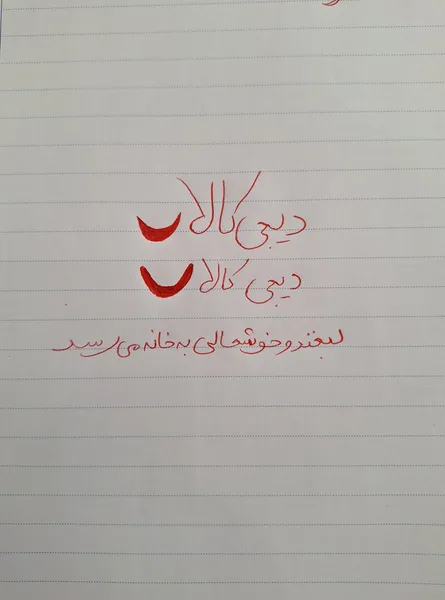 دیجی کالا
دیجی کالا
لبخند و خوشحالی به خانه می رسد